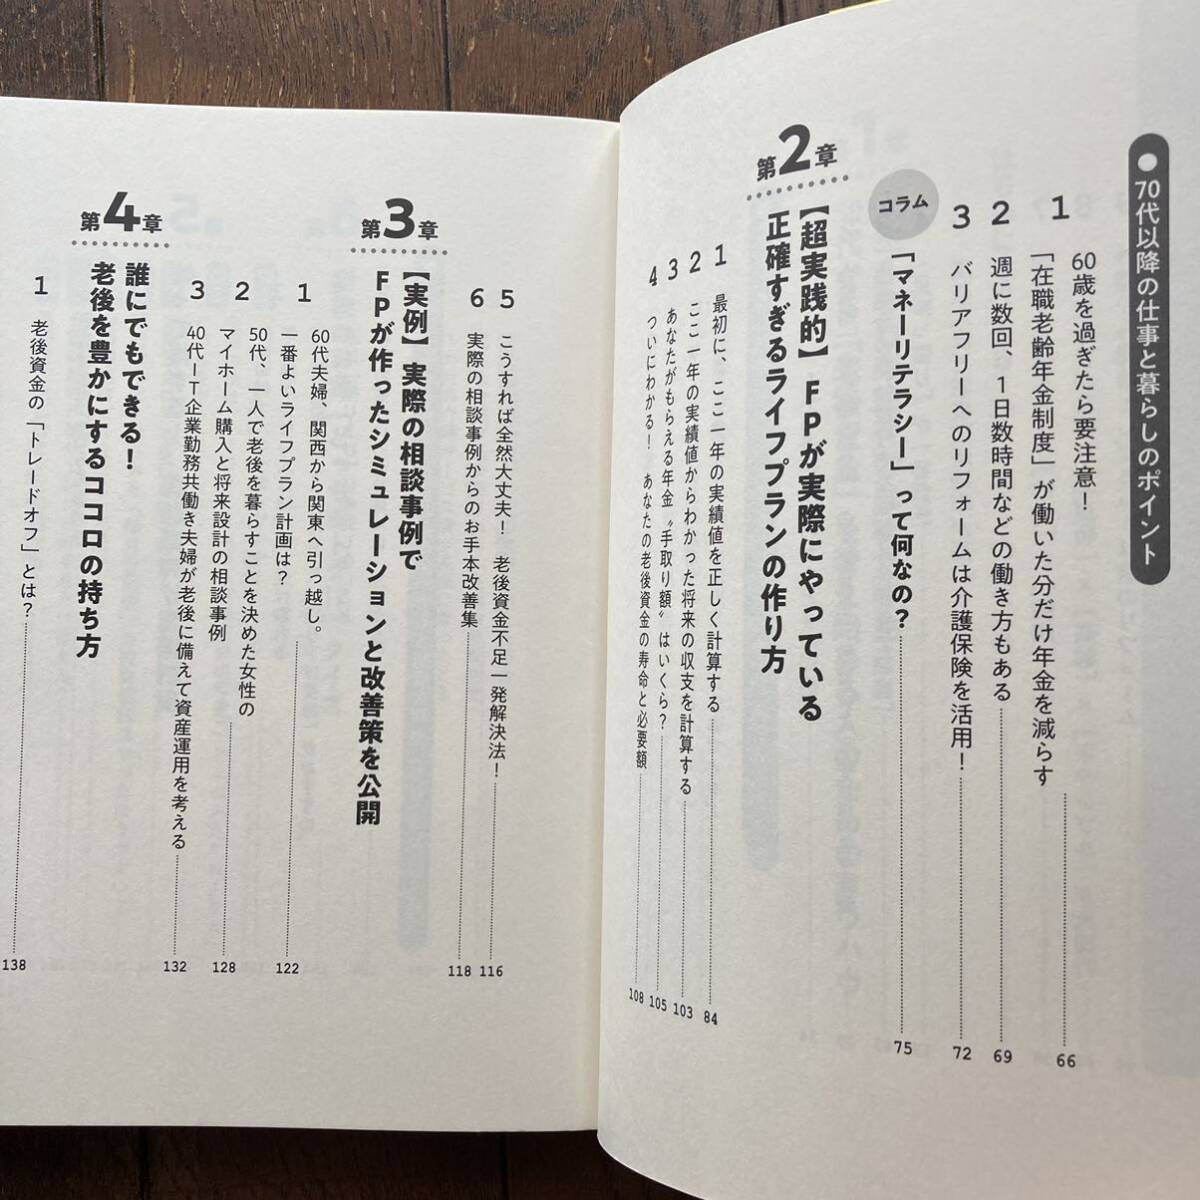 ● 70代以降の仕事と暮らしのポイント
1 60歳を過ぎたら要注意！
「在職老齢年金制度」が働いた分だけ年金を減らす 66
2 週に数回、1日数時間などの働き方もある 69
3 バリアフリーへのリフォームは介護保険を活用！ 72
コラム 「マネーリテラシー」って何なの？ 75
第2章 【超実践的】FPが実際にやっている
正確すぎるライフプランの作り方
1 最初に、ここ一年の実績値を正しく計算する 84
2 ここ一年の実績値からわかった将来の収支を計算する 103
3 あなたがもらえる年金〝手取り額〟はいくら？ 105
4 ついにわかる！ あなたの老後資金の寿命と必要額 108
5 こうすれば全然大丈夫！ 老後資金不足一発解決法！ 116
6 実際の相談事例からのお手本改善集 118
第3章 【実例】実際の相談事例で
FPが作ったシミュレーションと改善策を公開
1 60代夫婦、関西から関東へ引っ越し。
一番よいライフプラン計画は？ 122
2 50代、一人で老後を暮らすことを決めた女性の
マイホーム購入と将来設計の相談事例 128
3 40代IT企業勤務共働き夫婦が老後に備えて資産運用を考える 132
第4章 誰にでもできる！
老後を豊かにするココロの持ち方
1 老後資金の「トレードオフ」とは？ 138